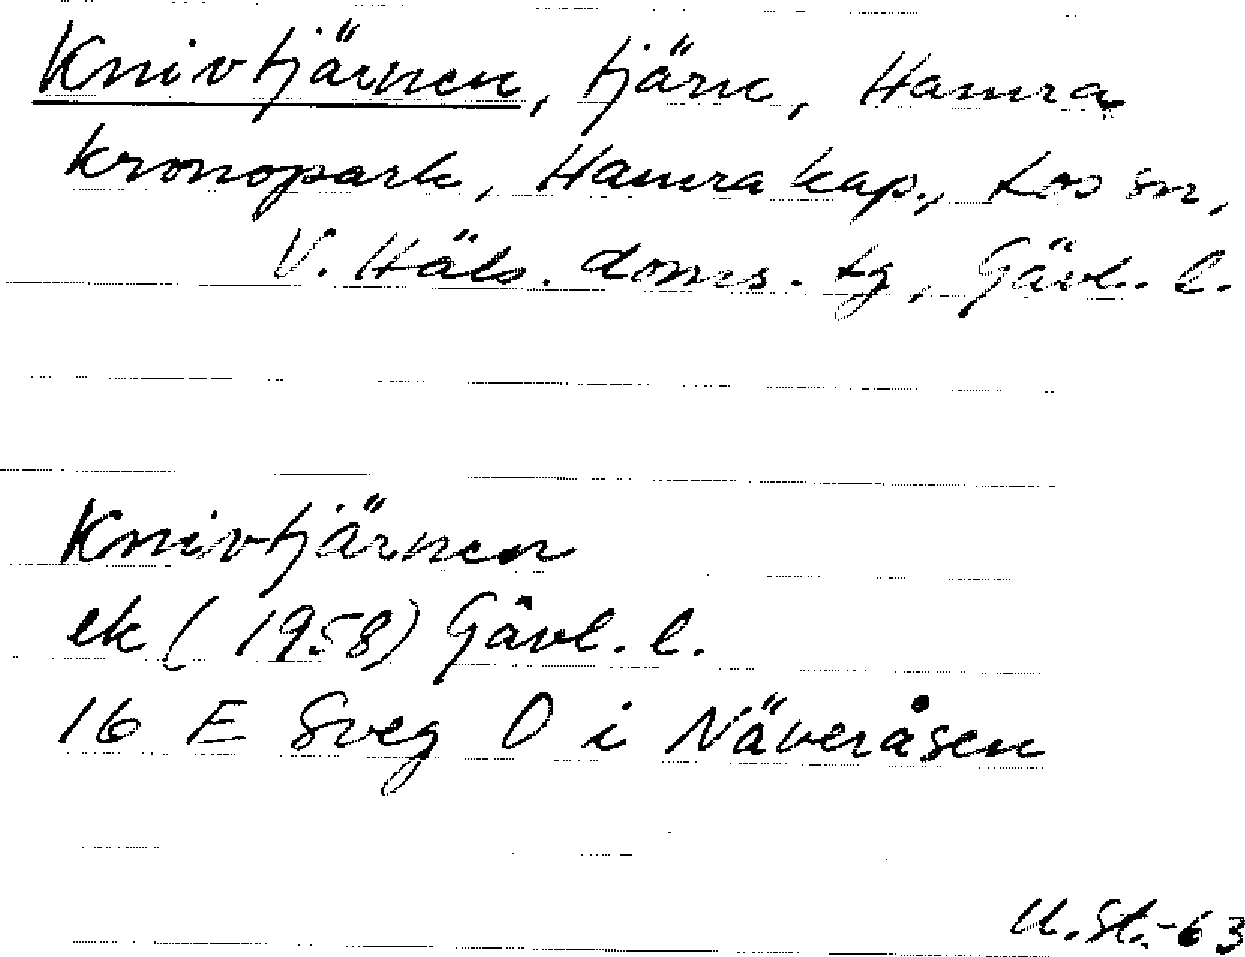 Knivtjärnen, tjärn, Hamra
kronopark, Hamra kap., Los sn,
V. Häls. doms. tg, Gävl. l.
Knivtjärnen
ek (1958) Gävl. l.
16 E Sveg O i Näveråsen
U. St.-63